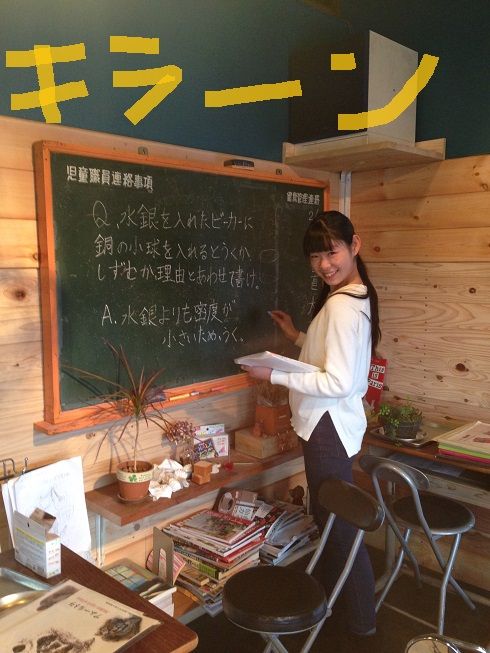 キラーン
児童議員連絡事項
Q.水銀を入れたビーカーに
銅の小球を入れるとうくか
しずむか理由とあわせて書け。
A.水銀よりも密度が
小さいため、うく。